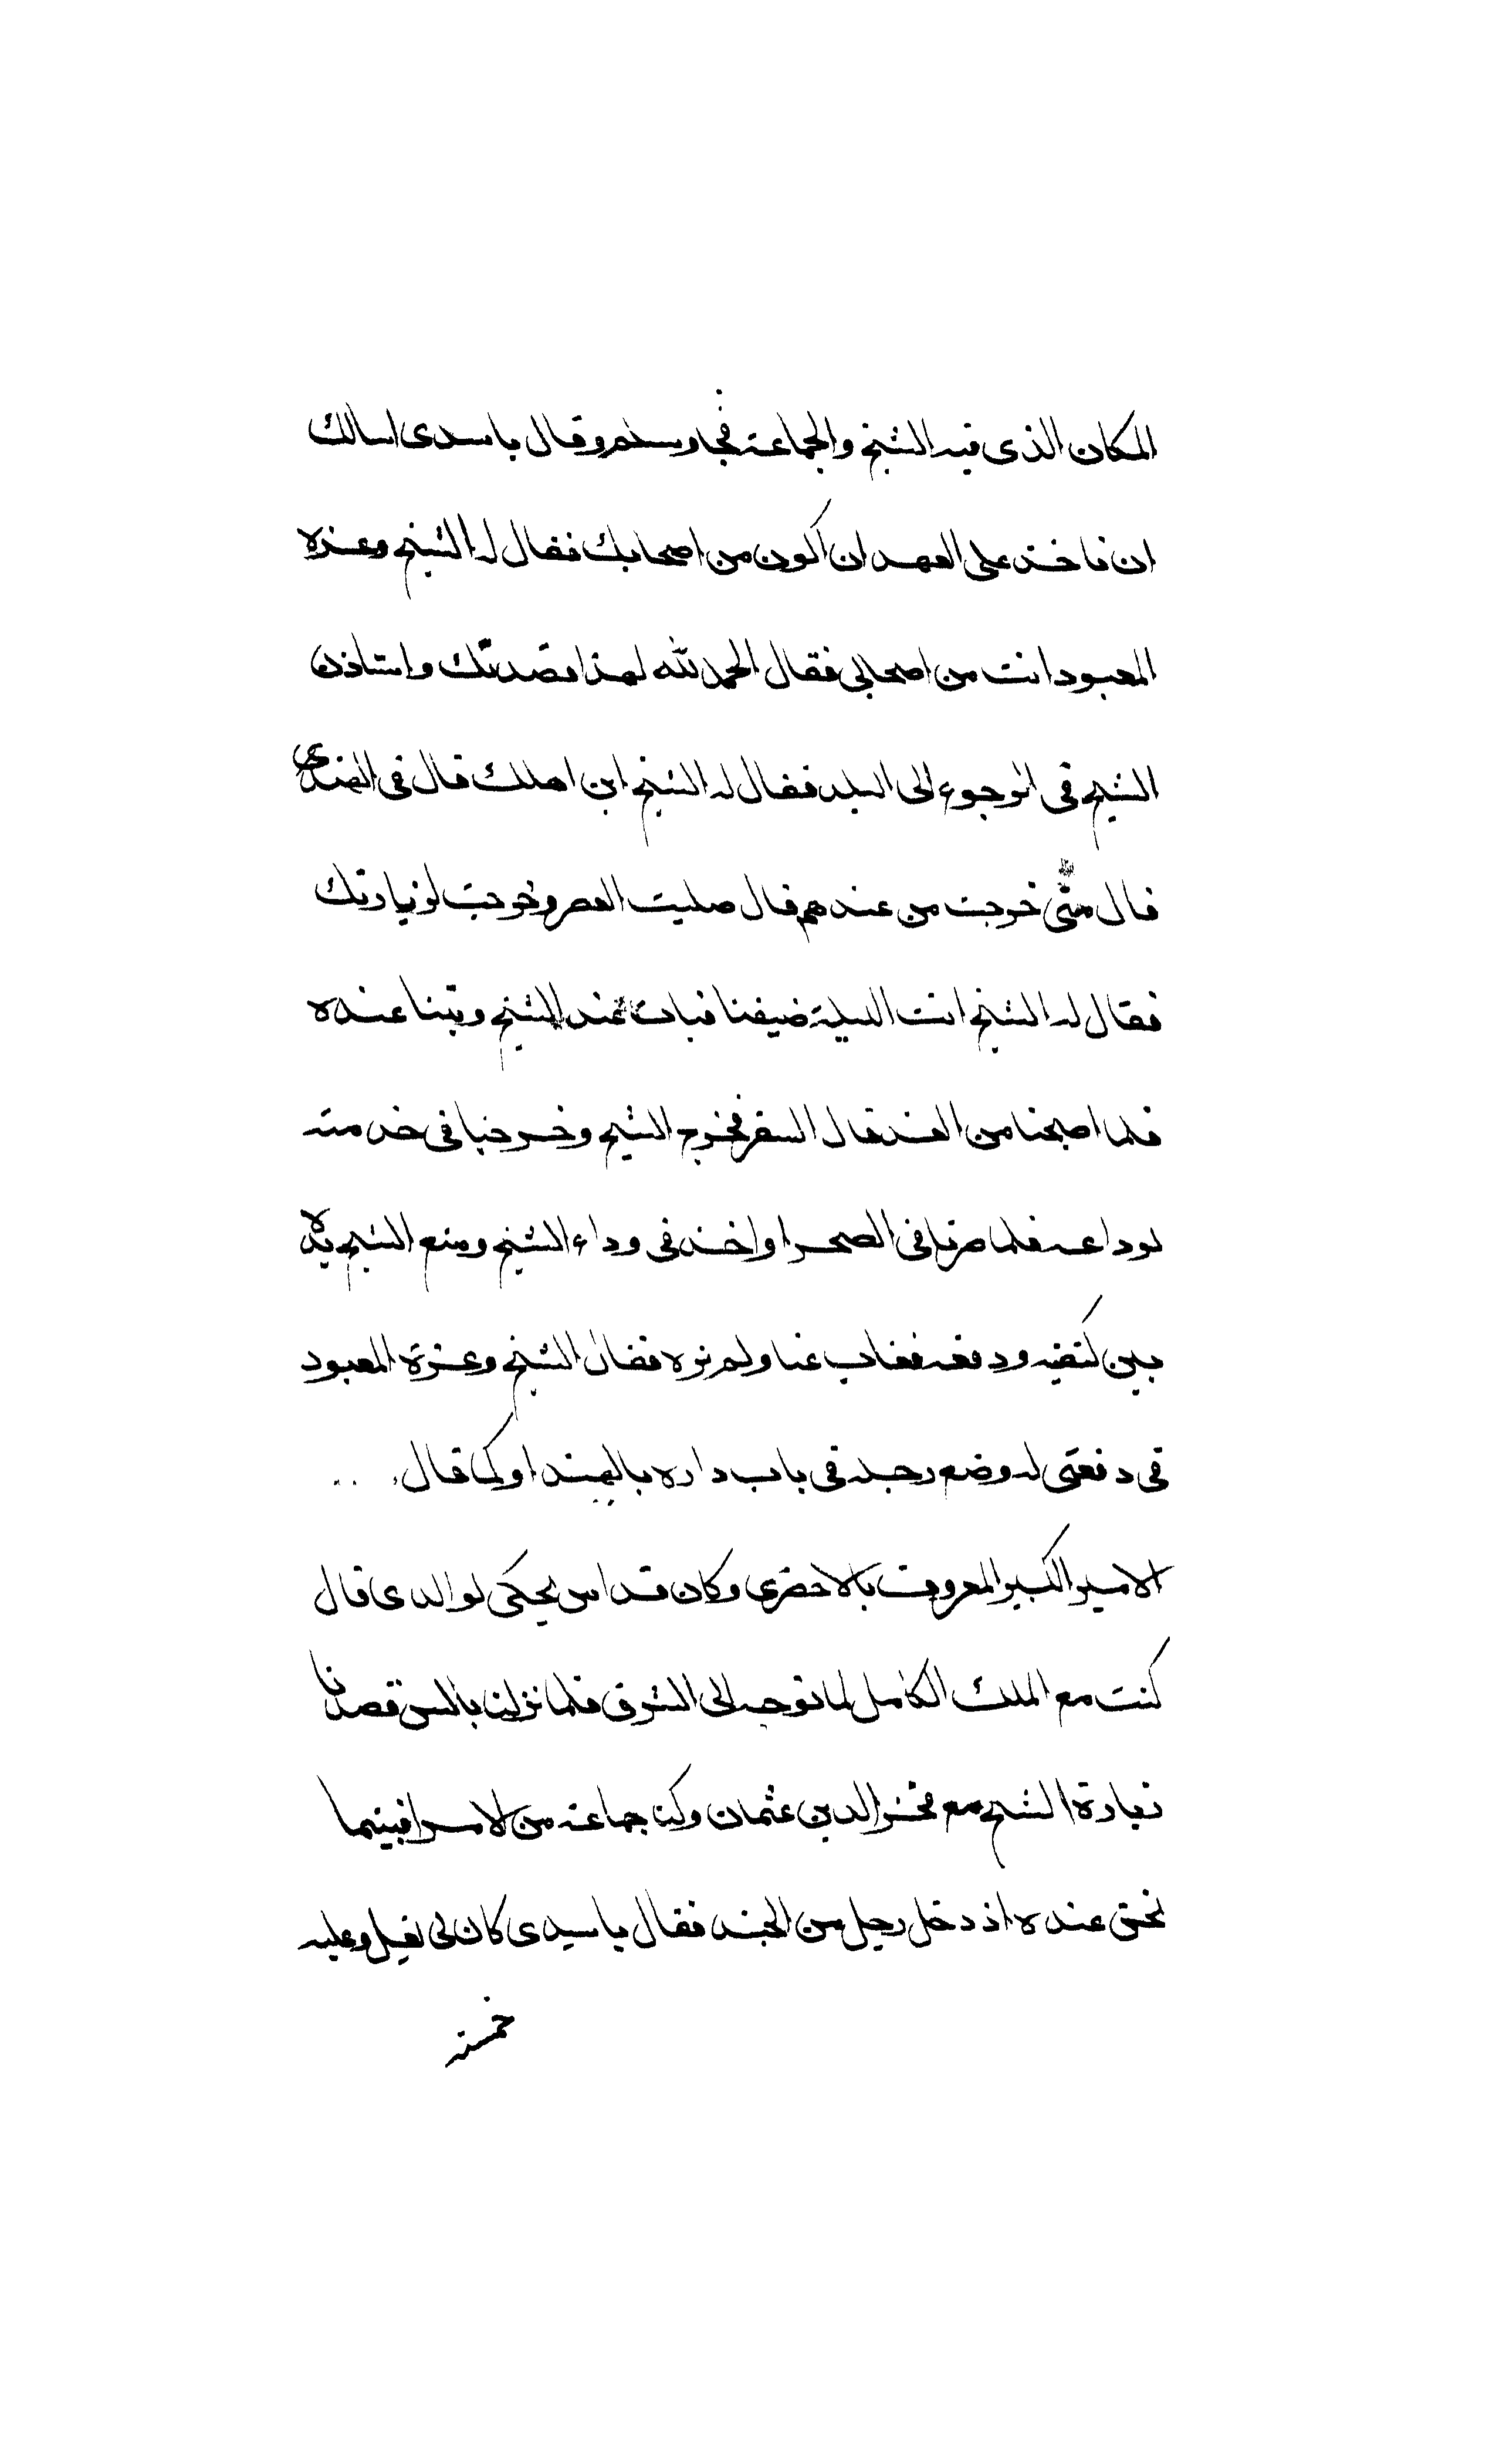 المكان الذى فيه الشيخ والجماعة فجا وسلم وقال ياسيدى اسالك
ان تاخذ على العهد ان اكون من اصحابك فقال له الشيخ وعزة
المعبود انت من اصحابى فقال الحمد لله لهذا قصدتك واستاذن
الشيخ فى الرجوع الى البلد فقال له الشيخ اين اهلك قال فى الهند
قال متى خرجت من عندهم قال صليت العصر وخرجت لزيارتك
فقال له الشيخ انت الليلة ضيفنا فبات عند الشيخ وبتنا عنده
فلما اصبحنا من الغد قال السفر فخرج الشيخ وخرجنا فى خدمته
لوداعه فلما صرنا فى الصحرا واخذ فى وداع الشيخ وضع الشيخ يده
بين كتفيه ودفعه فغاب عنا ولم نره فقال الشيخ وعزة المعبود
فى دفعتى له وضع رجله فى باب داره بالهند او كما قال
الامير الكبير المعروف بالاخضرى وكان قد اسن يحكى لوالدى قال
كنت مع الملك الكامل لما توجه الى الشرق فلما نزلنا بالس قصدنا
زيارة الشيخ مع فخر الدين عثمان وكنا جماعة من الامرا فبينما
نحن عنده اذ دخل رجل من الجند فقال ياسيدى كان لى بغل وعليه
خمسة